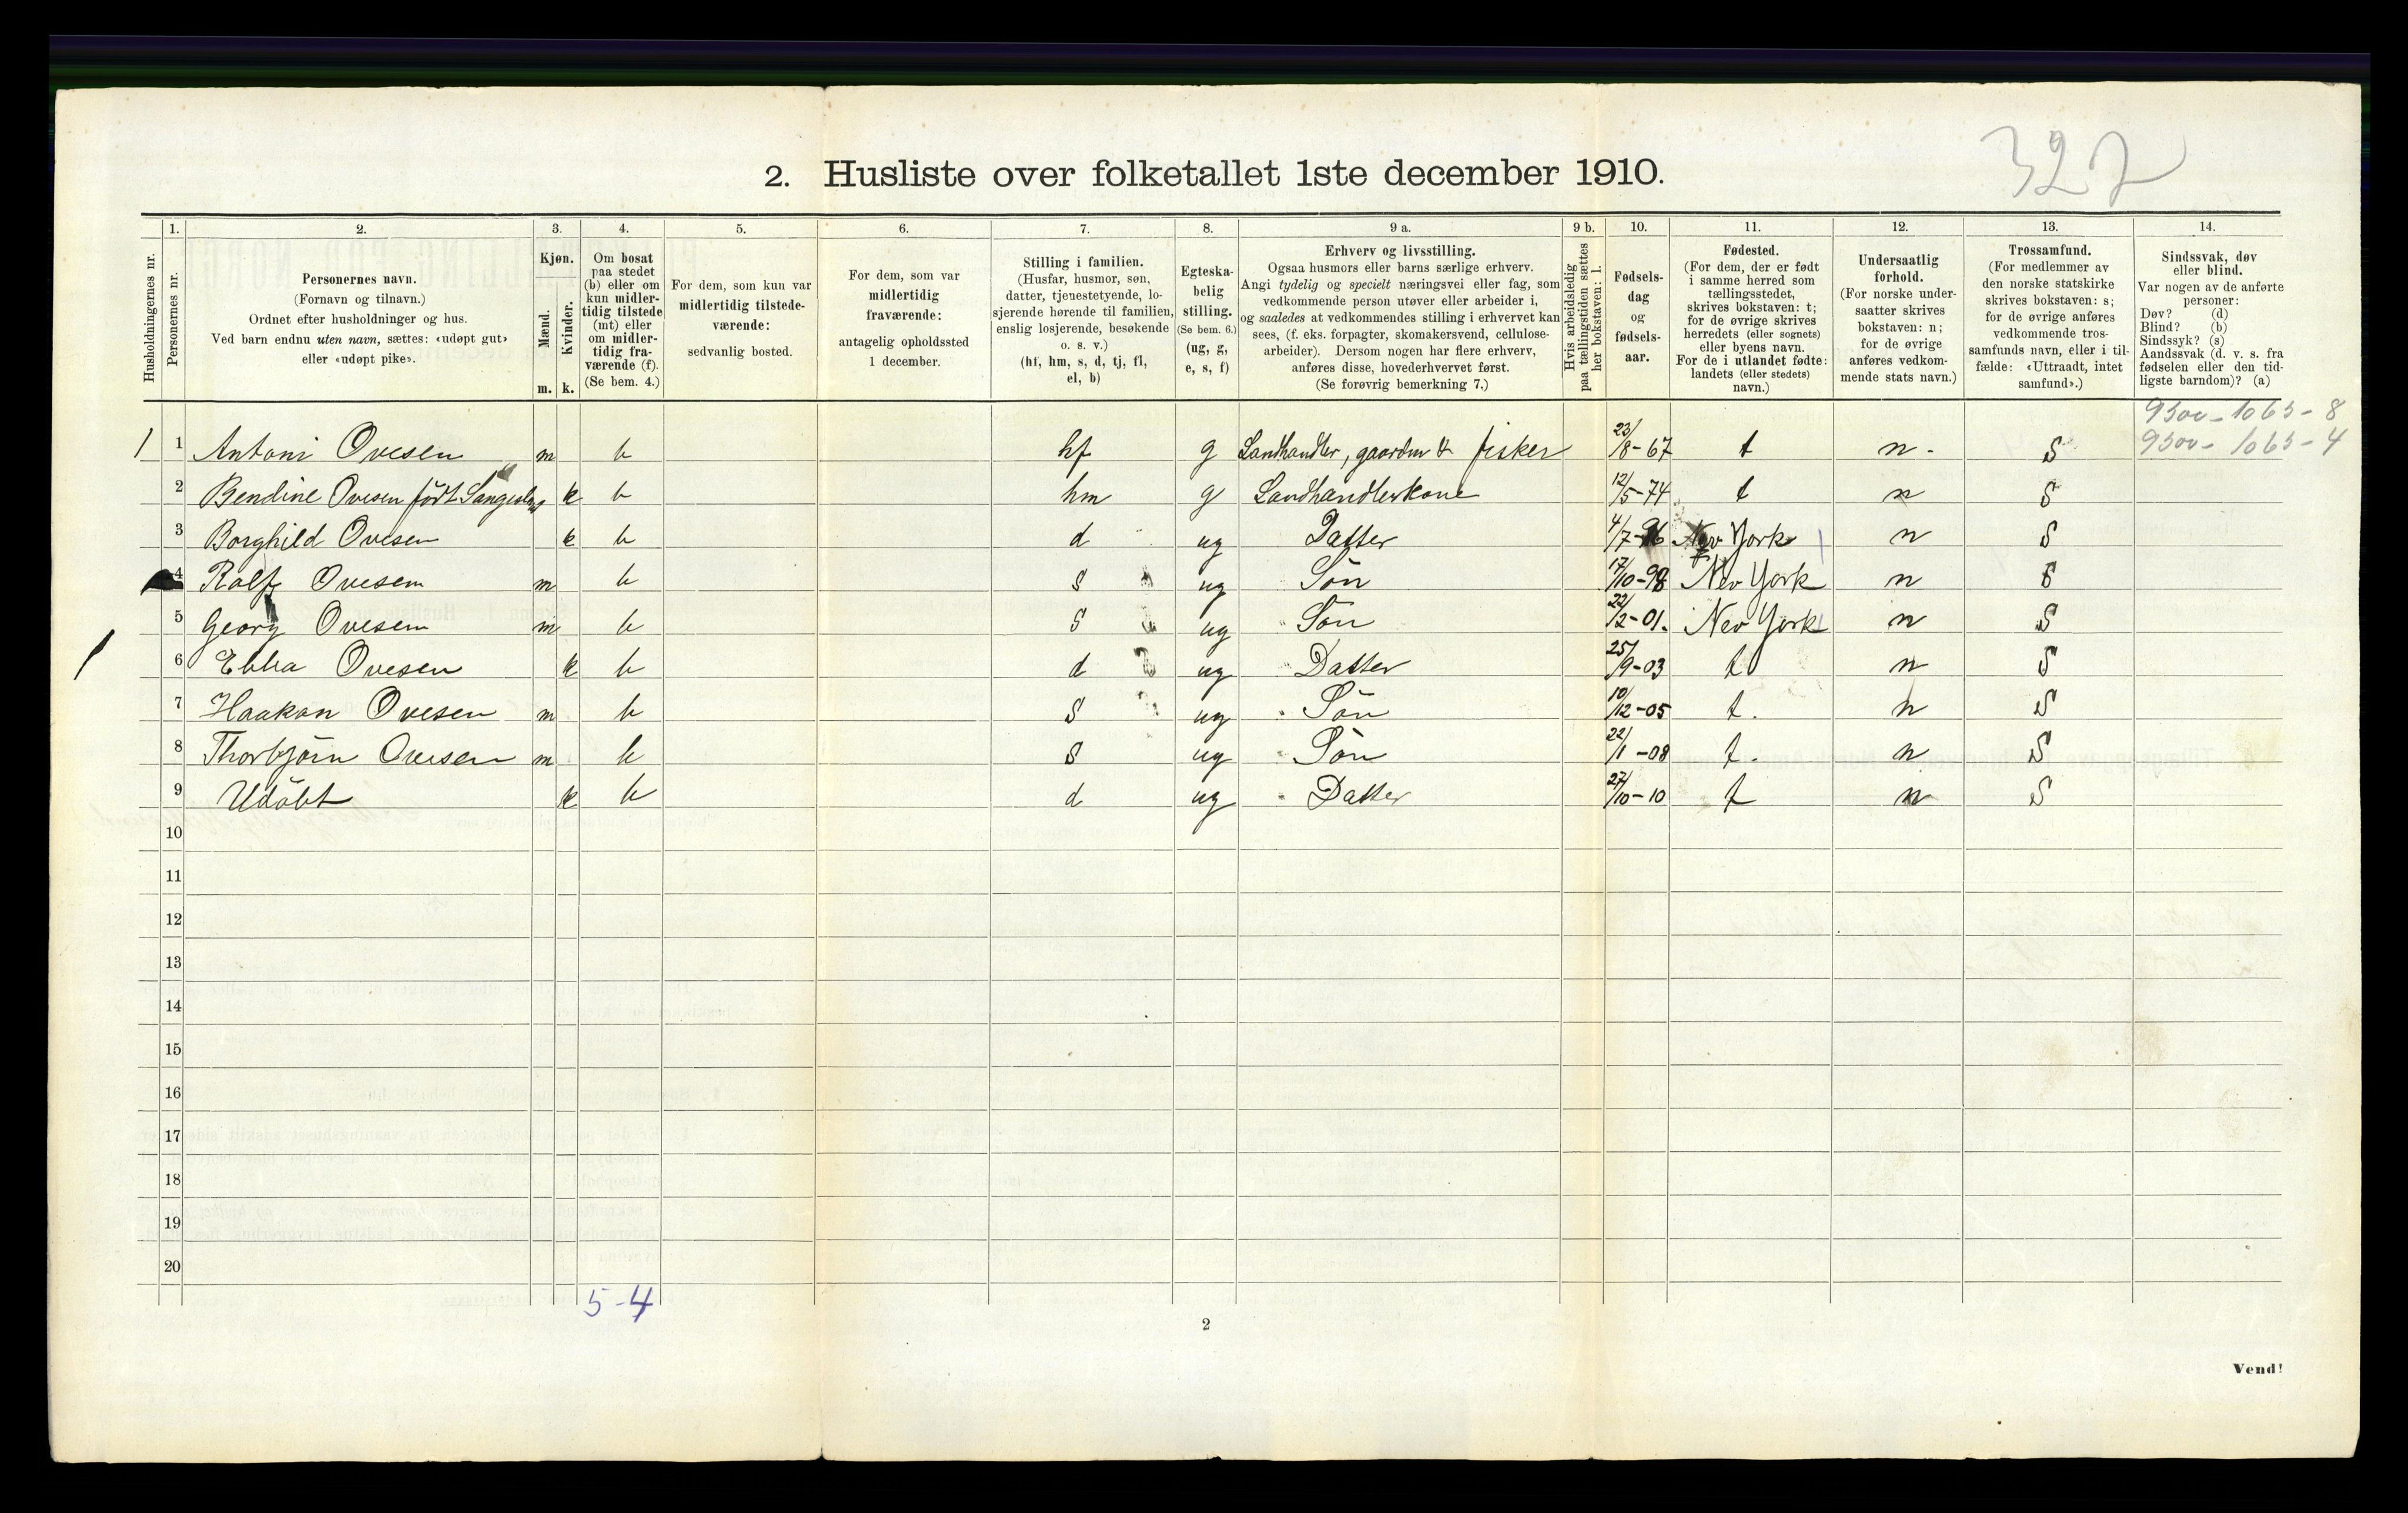 327
2. Husliste over folketallet 1ste december 1910.
Husholdningernes nr.
1. Personernes nr.
2. Personernes navn. (Fornavn og tilnavn.) Ordnet efter husholdninger og hus. Ved barn endnu uten navn, sættes: «udøpt gut» eller «udøpt pike».
3. Kjøn. Mænd. m. Kvinder. k.
4. Om bosat paa stedet (b) eller om kun midlertidig tilstede (mt) eller om midlertidig fraværende (f). (Se bem. 4.)
5. For dem, som kun var midlertidig tilstedeværende: sedvanlig bosted.
6. For dem, som var midlertidig fraværende: antagelig opholdssted 1 december.
7. Stilling i familien. (Husfar, husmor, søn, datter, tjenestetyende, losjerende hørende til familien, enslig losjerende, besøkende o. s. v.) (hf, hm, s, d, tj, fl, el, b)
8. Egteskabelig stilling. (Se bem. 6.) (ug, g, e, s, f)
9 a. Erhverv og livsstilling. Ogsaa husmors eller barns særlige erhverv. Angi tydelig og specielt næringsvei eller fag, som vedkommende person utøver eller arbeider i, og saaledes at vedkommendes stilling i erhvervet kan sees, (f. eks. forpagter, skomakersvend, cellulosearbeider). Dersom nogen har flere erhverv, anføres disse, hovederhvervet først. (Se forøvrig bemerkning 7.)
9 b. Hvis arbeidsledig paa tællingstiden sættes her bokstaven: l.
10. Fødselsdag og fødselsaar.
11. Fødested. (For dem, der er født i samme herred som tællingsstedet, skrives bokstaven: t; for de øvrige skrives herredets (eller sognets) eller byens navn. For de i utlandet fødte: landets (eller stedets) navn.)
12. Undersaatlig forhold. (For norske undersaatter skrives bokstaven: n; for de øvrige anføres vedkommende stats navn.)
13. Trossamfund. (For medlemmer av den norske statskirke skrives bokstaven: s; for de øvrige anføres vedkommende trossamfunds navn, eller i tilfælde: «Uttraadt, intet samfund».)
14. Sindssvak, døv eller blind. Var nogen av de anførte personer: Døv? (d) Blind? (b) Sindssyk? (s) Aandssvak (d. v. s. fra fødselen eller den tidligste barndom)? (a)
9500-1065-8
1 1 Antoni Ovesen m b hf g Landhandler, gaardbr & fisker 23/8-67 t n. S 9500-1065-4
2 Bendine Ovesen født k b hm g Landhandlerkone 12/5-74 t n S
3 Borghild Ovesen k b d ug Datter 4/7-96 New York n S
4 Rolf Ovesen m b S ug Søn 17/10-98 New York n S
5 Georg Ovesen m b S ug Søn 22/2-01. New York n S
6 Ebba Ovesen k b d ug Datter 25/9-03 t n S
7 Haakon Ovesen m b S ug Søn 10/12-05 t. n S
8 Thorbjørn Ovesen m b S ug Søn 22/1-08 t. n S
9 Udøbt k b d ug Datter 27/10-10 t n S
10
11
12
13
14
15
16
17
18
19
20
5-4
2
Vend!